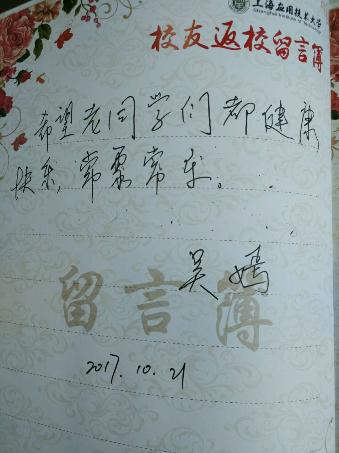 上海应用技术大学
Shanghai Institute of Technology
校友返校留言簿
希望老同学们都健康
快乐，常聚常乐。
吴嫣
留言簿
2017.10.21